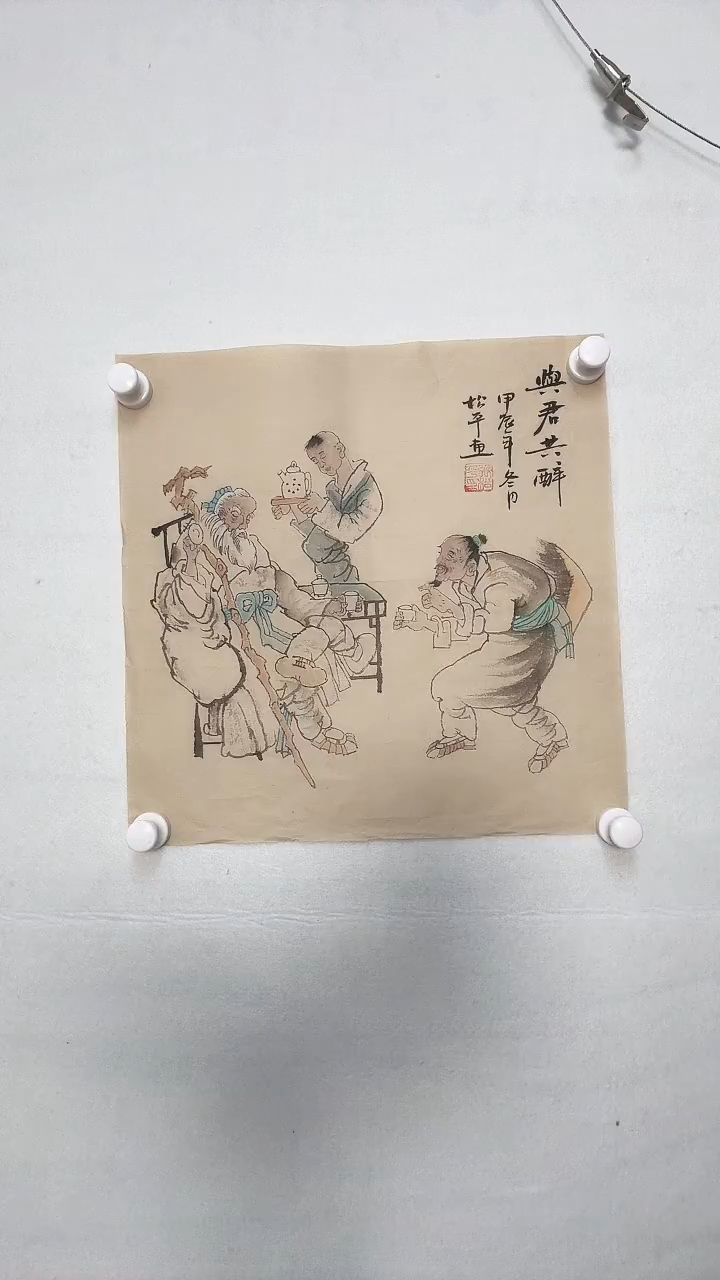 與君共醉
甲辰年冬月
松平画